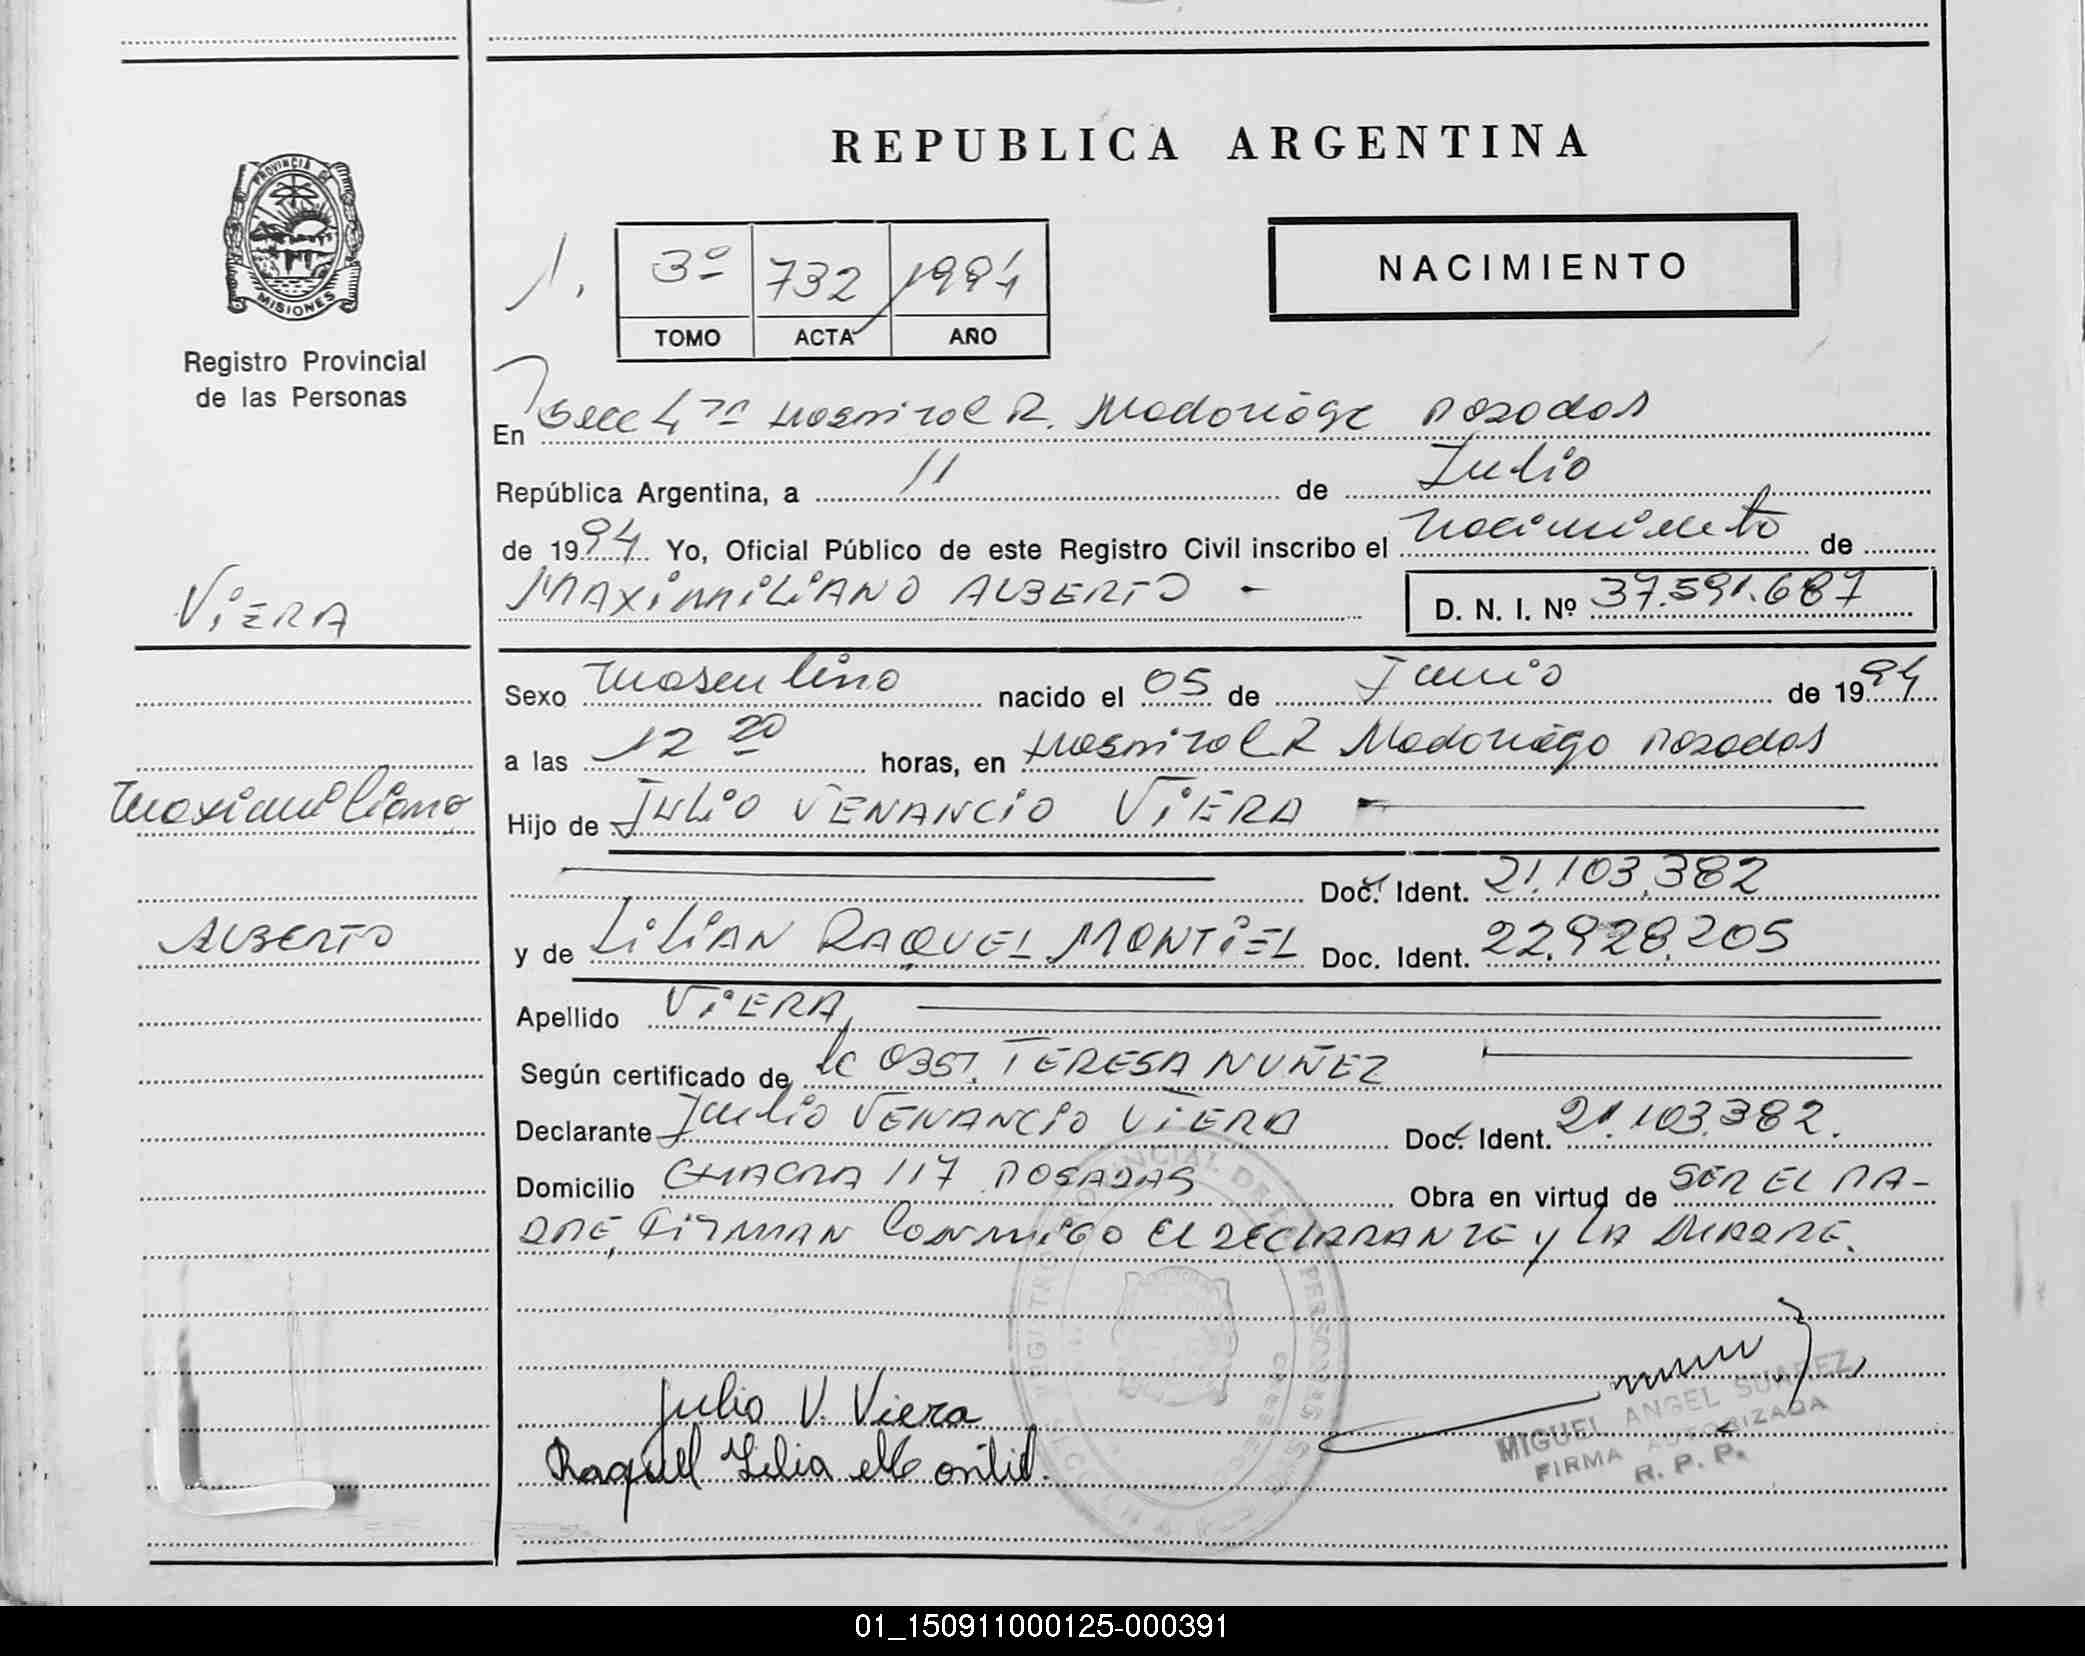 REPUBLICA ARGENTINA
PROVINCIA DE
MISIONES
Registro Provincial
de las Personas
1.
3º 732 1994
TOMO ACTA AÑO
NACIMIENTO
En Secc 4ta Hospital R. Madariaga Posadas
República Argentina, a 11 de Julio
de 1994 Yo, Oficial Público de este Registro Civil inscribo el Nacimiento de
MAXIMILIANO ALBERTO -
D. N. I. Nº 37.591.687
VIERA
Maximiliano
ALBERTO
Sexo Masculino nacido el 05 de Junio de 1994
a las 12 20 horas, en Hospital R Madariaga Posadas
Hijo de JULIO VENANCIO VIERA
Doc. Ident. 21.103.382
y de LILIAN RAQUEL MONTIEL Doc. Ident. 22.928.205
Apellido VIERA
Según certificado de la OBST. TERESA NUÑEZ
Declarante Julio VENANCIO VIERA Doc. Ident. 21.103.382.
Domicilio CHACRA 117 POSADAS Obra en virtud de SER EL PA-
DRE, FIRMAN CONMIGO EL DECLARANTE Y LA MADRE.
Julio V. Viera
Raquel Lilia Montiel.
MIGUEL ANGEL SUAREZ
FIRMA AUTORIZADA
R. P. P.
01_150911000125-000391